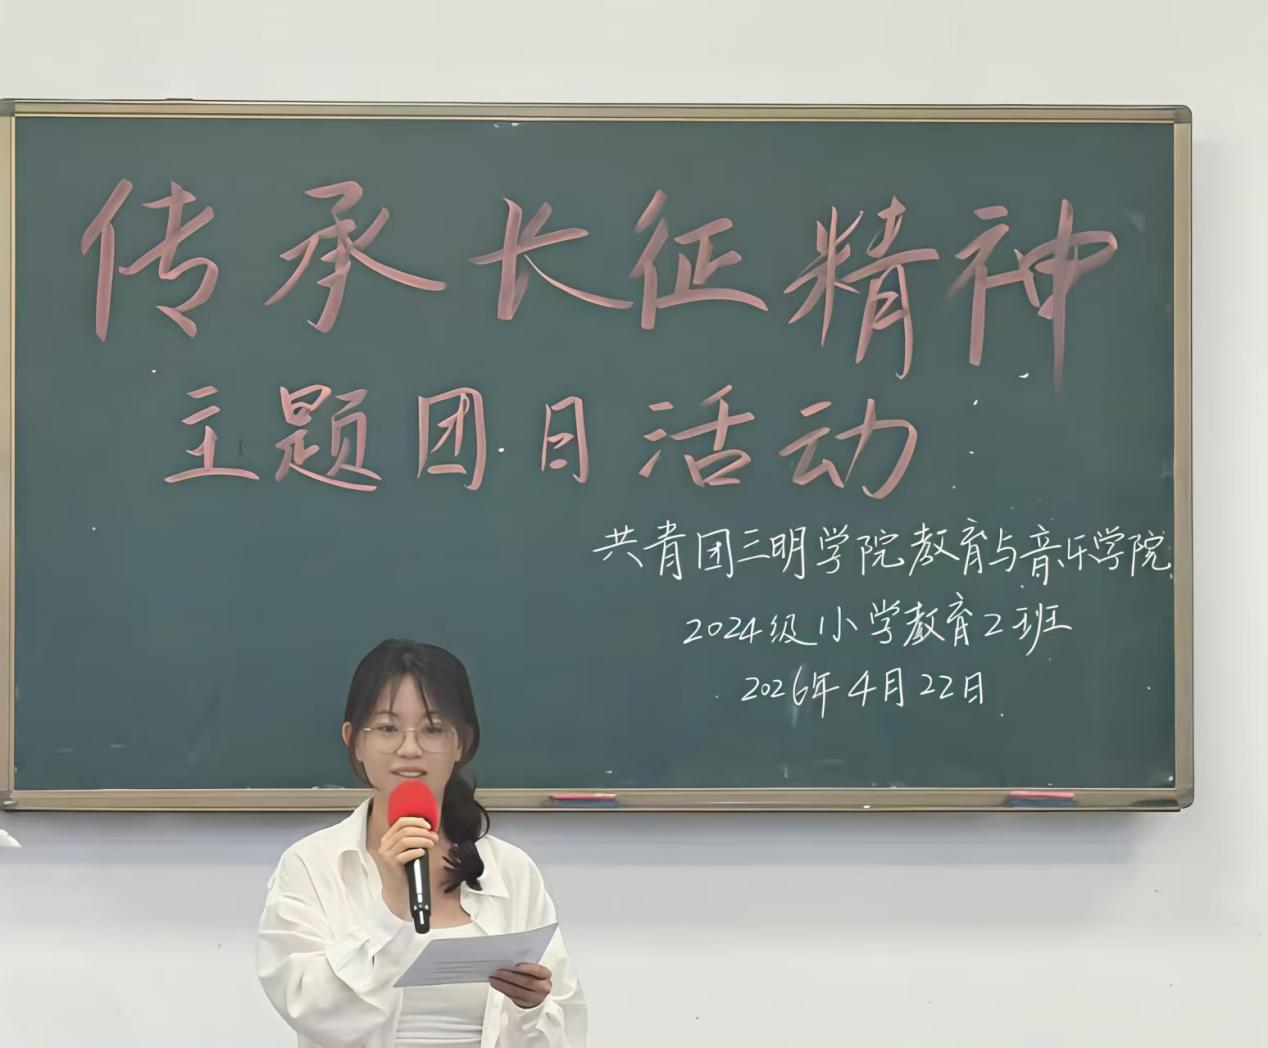 传承长征精神
主题团日活动
共青团三明学院教育与音乐学院
2024级小学教育2班
2026年4月22日